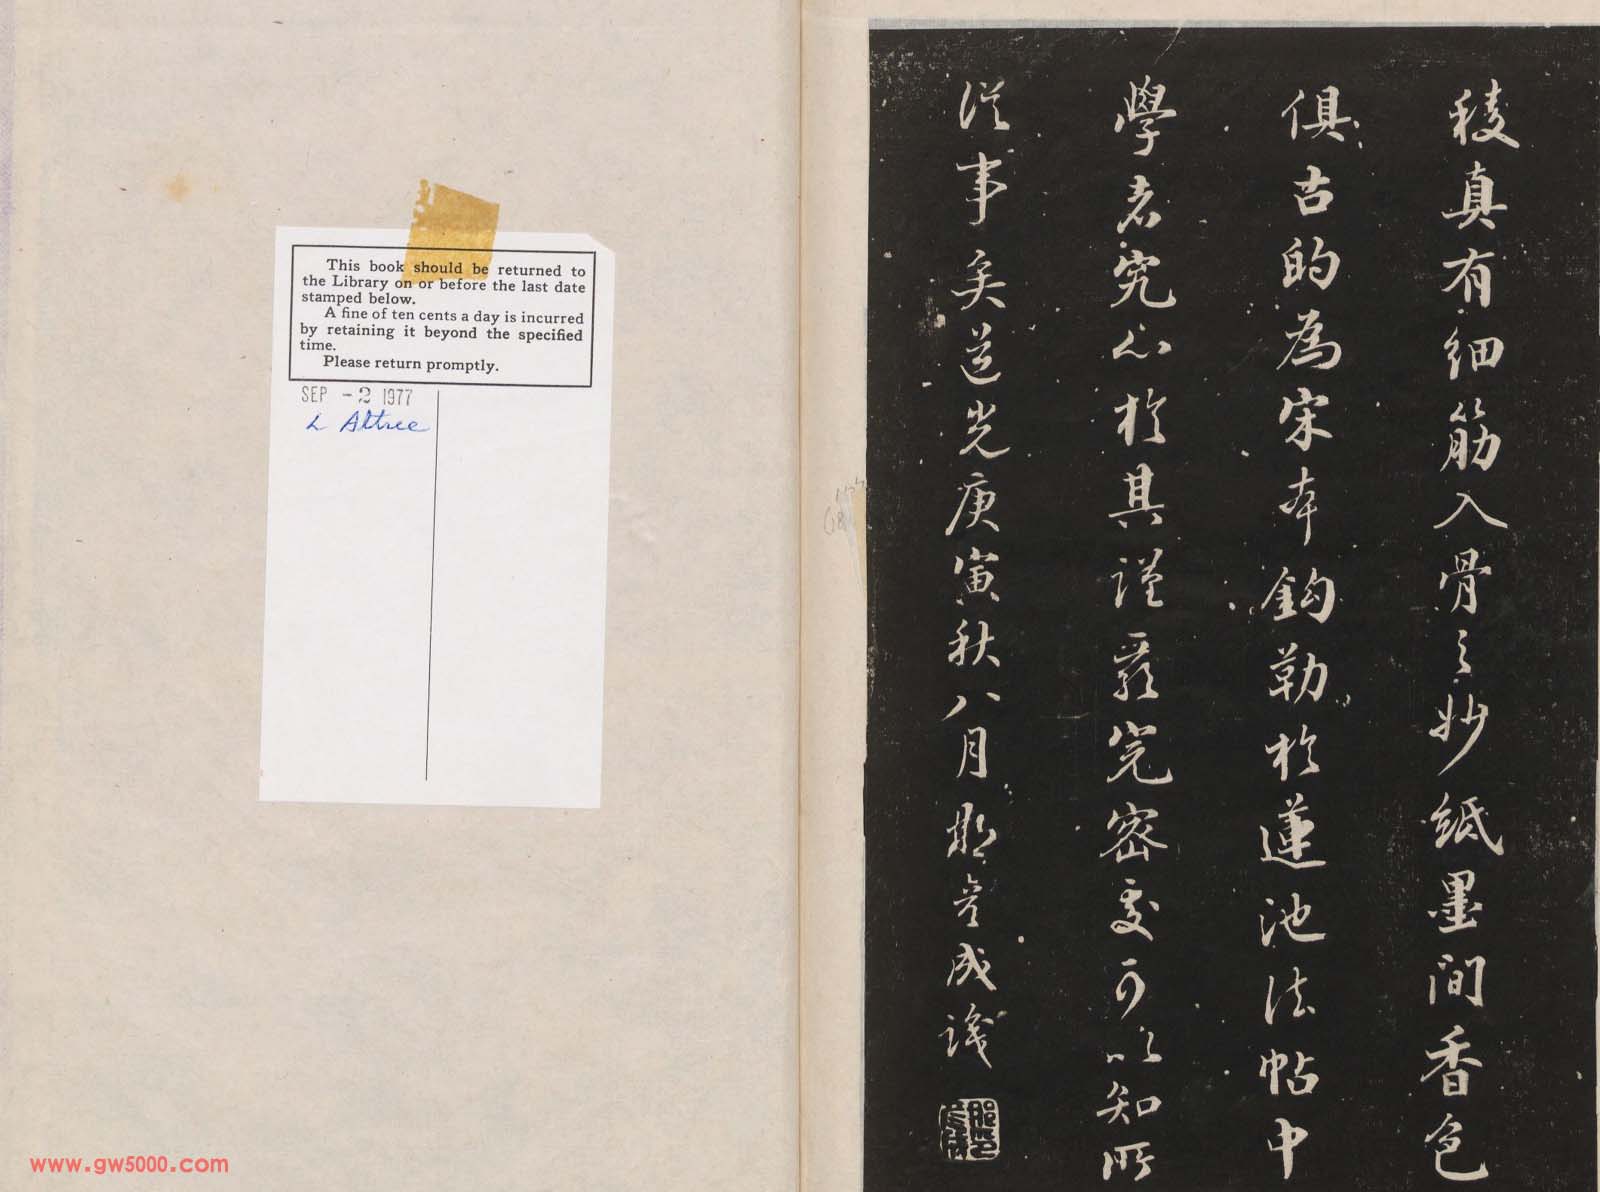 This book should be returned to
the Library on or before the last date
stamped below.
A fine of ten cents a day is incurred
by retaining it beyond the specified
time.
Please return promptly.
SEP -2 1977
L Attree
稜真有细筋入骨之妙紙墨间香色
俱古的為宋本鈎勒於蓮池法帖中
學者究心於其謹嚴完密處可以知所
従事矣道光庚寅秋八月那彦成識
www.gw5000.com